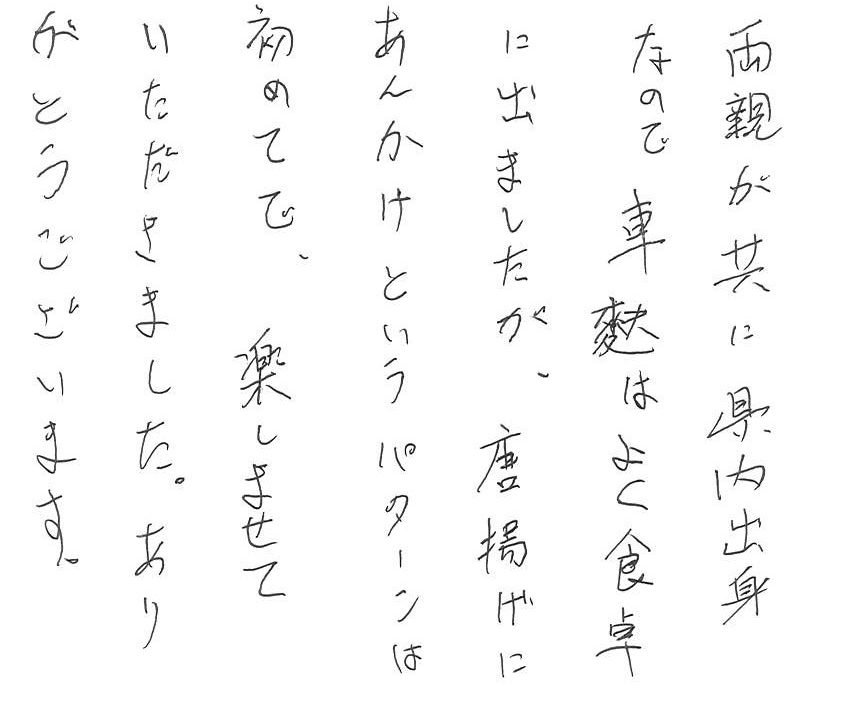 両親が共に県内出身
なので車麩はよく食卓
に出ましたが、唐揚げに
あんかけというパターンは
初めてで、楽しませて
いただきました。あり
がとうございます。